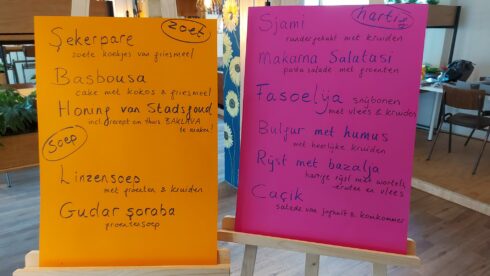 zoet
Şekerpare
zoete koekjes van griesmeel
Basbousa
cake met kokos & griesmeel
Honing van Stadsgoud
incl. recept om thuis BAKLAVA
te maken!
soep
Linzensoep
met groenten & kruiden
Gudar şoraba
groentesoep
hartig
Sjami
rundergehakt met kruiden
Makarna Salatasi
pasta salade met groenten
Fasoelija snijbonen
met vlees & kruiden
Bulgur met humus
met heerlijke kruiden
Rijst met bazalja
hartige rijst met wortels,
erwten en vlees
Caçik
salade van yoghurt & komkommer